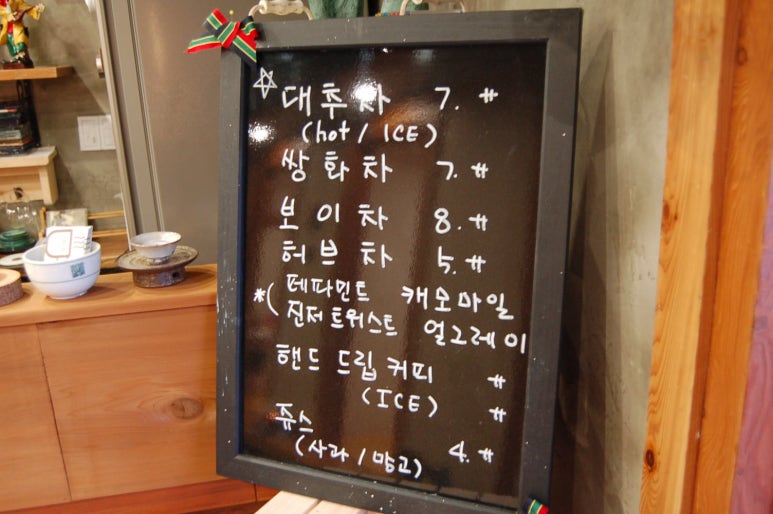 ☆ 대추차 7. #
(hot / ICE)
쌍화차 7. #
보이차 8. #
허브차 5. #
*( 페파민트 캐모마일
진저트위스트 얼그레이
핸드드립커피 #
(ICE) #
쥬스
(사과 / 망고) 4. #